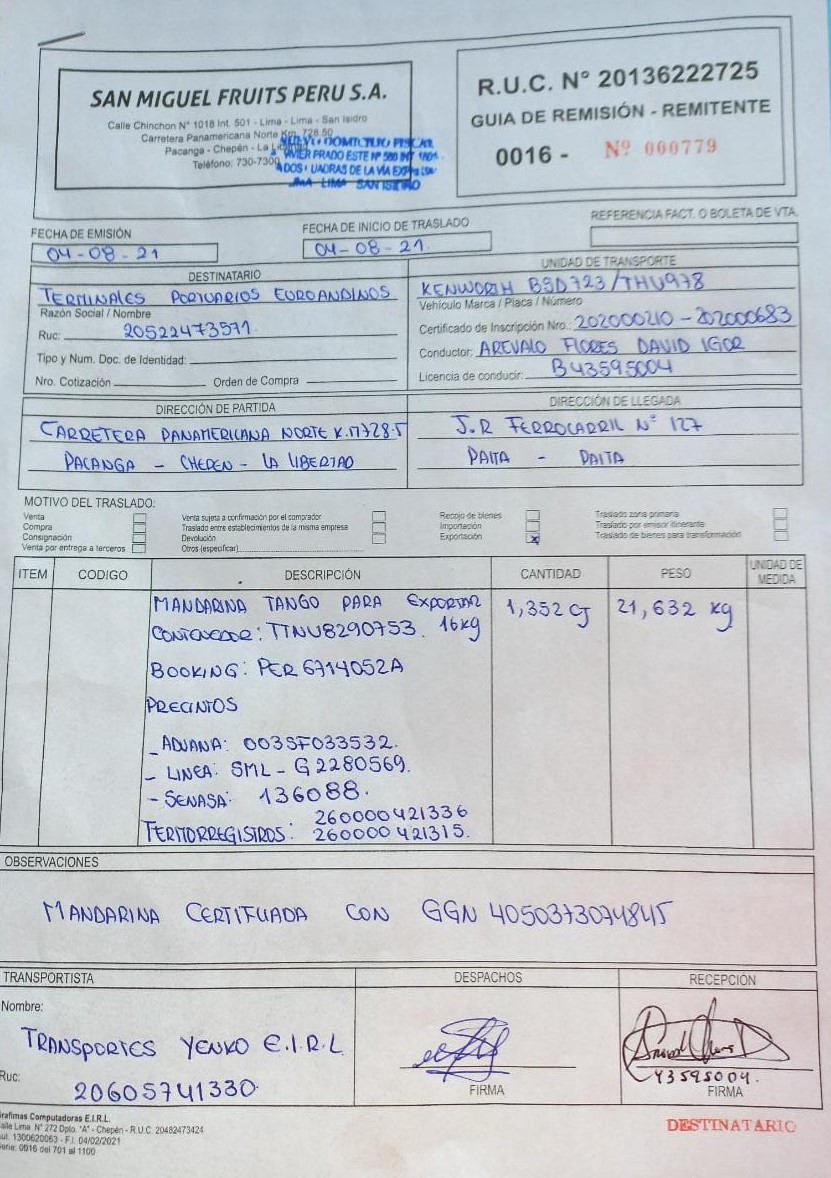 SAN MIGUEL FRUITS PERU S.A.
Calle Chinchon N° 1018 Int. 501 - Lima - Lima - San Isidro
Carretera Panamericana Norte Km. 728.50
Pacanga - Chepén - La
Teléfono: 730-7300
NUEVO DOMICILIO FISCAL
JAVIER PRADO ESTE N° 560 INT
LIMA LIMA SAN ISIDRO
R.U.C. N° 20136222725
GUIA DE REMISIÓN - REMITENTE
0016 - Nº 000779
FECHA DE EMISIÓN
04-08-21
FECHA DE INICIO DE TRASLADO
04-08-21.
REFERENCIA FACT. O BOLETA DE VTA.
DESTINATARIO
TERMINALES PORTUARIOS EUROANDINOS
Razón Social / Nombre
Ruc: 20522473571.
Tipo y Num. Doc. de Identidad:
Nro. Cotización Orden de Compra
UNIDAD DE TRANSPORTE
KENWORTH B5D723/THU978
Vehículo Marca / Placa / Número
Certificado de Inscripción Nro.: 202000210 - 202000683
Conductor: AREVALO FLORES DAVID IGOR
Licencia de conducir: B43595004
DIRECCIÓN DE PARTIDA
CARRETERA PANAMERICANA NORTE K.M728.5
PACANGA - CHEPEN - LA LIBERTAD
DIRECCIÓN DE LLEGADA
J.R FERROCARRIL N° 127
PAITA - PAITA
MOTIVO DEL TRASLADO:
Venta
Compra
Consignación
Venta por entrega a terceros
Venta sujeta a confirmación por el comprador
Traslado entre establecimientos de la misma empresa
Devolución
Otros (especificar)
Recojo de bienes
Importación
Exportación X
Traslado zona primaria
Traslado por emisor itinerante
Traslado de bienes para transformación
ITEM CODIGO DESCRIPCIÓN CANTIDAD PESO UNIDAD DE MEDIDA
MANDARINA TANGO PARA EXPORTAR 1,352 CJ 21,632 kg
CONTENEDOR: TTNU8290753. 16kg
BOOKING: PER 6714052A
PRECINTOS
- ADUANA: 003SF033532.
- LINEA: SML - G2280569.
- SENASA: 136088.
260000421336
TERMORREGISTROS: 260000421315.
OBSERVACIONES
MANDARINA CERTIFICADA CON GGN 4050373074845
TRANSPORTISTA
Nombre:
TRANSPORTES YENKO E.I.R.L
Ruc:
20605741330
DESPACHOS
FIRMA
RECEPCIÓN
43595004.
FIRMA
Grafimas Computadoras E.I.R.L.
Calle Lima N° 272 Dpto. "A" - Chepén - R.U.C. 20482473424
Aut. 1300620063 - F.I. 04/02/2021
Serie: 0016 del 701 al 1100
DESTINATARIO